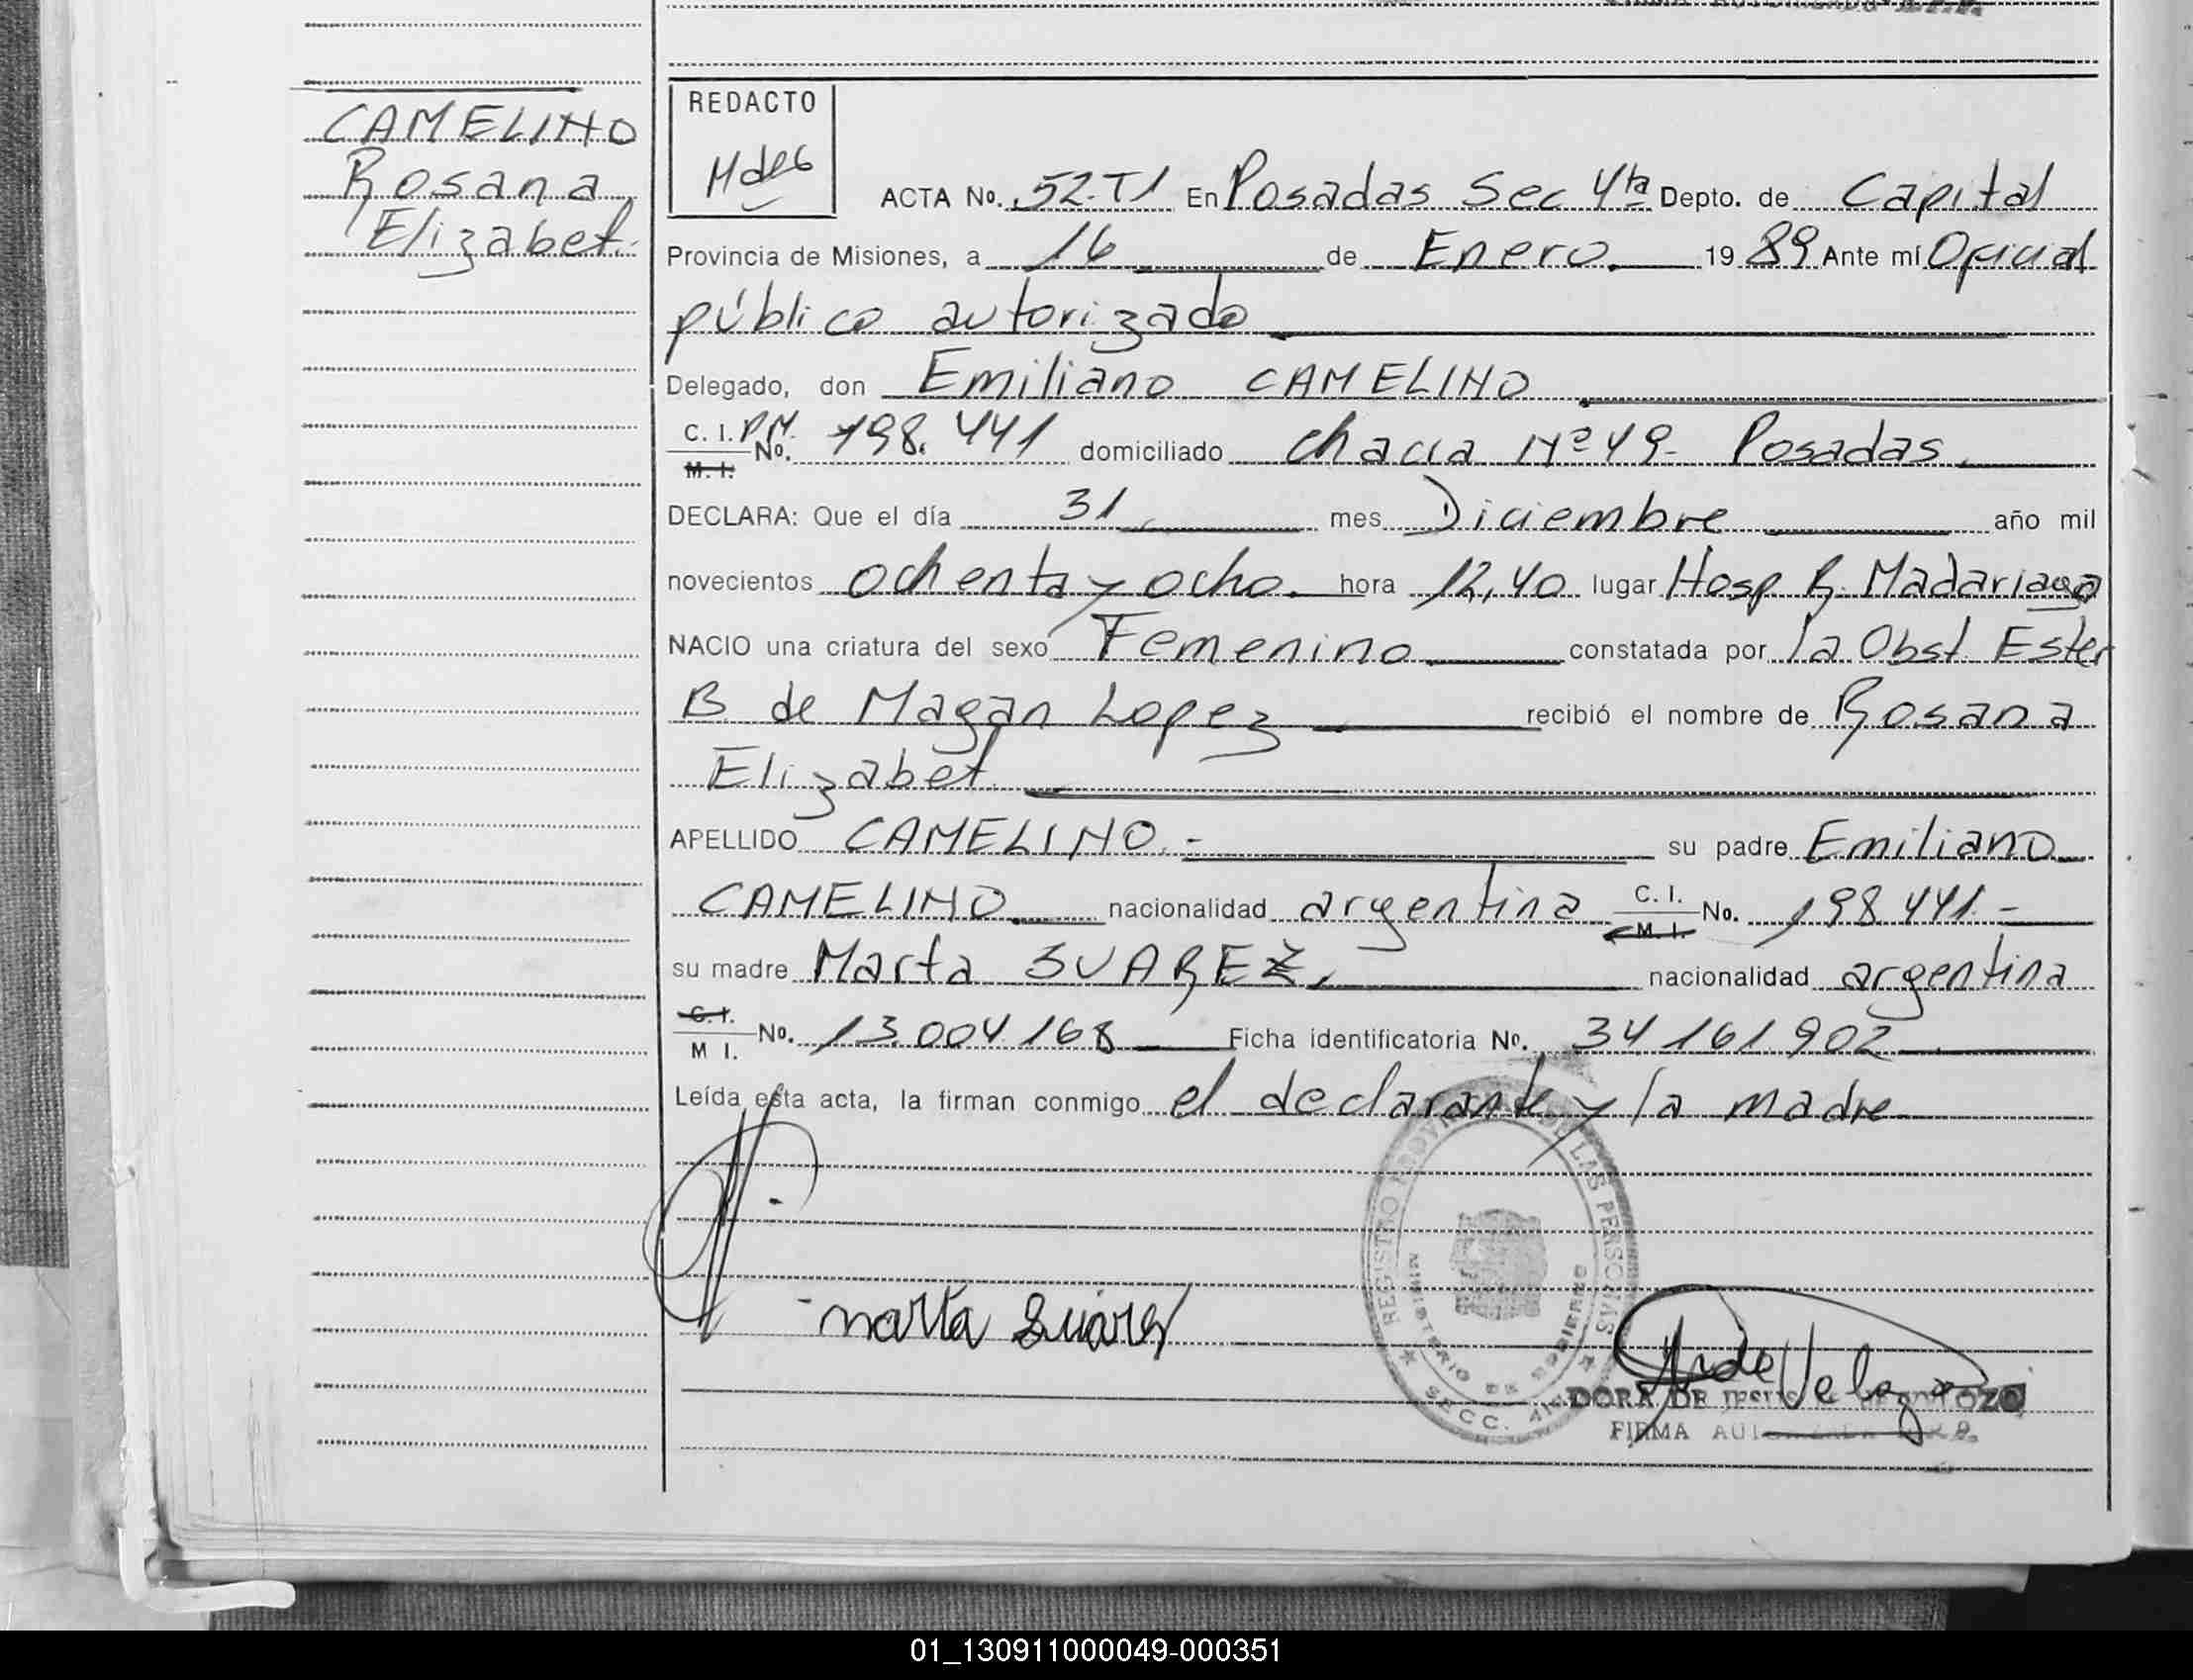 CAMELINO
Rosana
Elizabet.
REDACTO
ACTA No. 52-T1 En Posadas Sec 4ta Depto. de Capital
Provincia de Misiones, a 16 de Enero. 19 89 Ante mí Oficial
público autorizado
Delegado, don Emiliano CAMELINO
C. I. P.M.
M. I. No. 198.441 domiciliado chacra Nº 49- Posadas.
DECLARA: Que el día 31 mes Diciembre año mil
novecientos ochenta y ocho. hora 12,40 lugar Hosp R. Madariaga
NACIO una criatura del sexo Femenino constatada por la Obst. Ester
B de Magan Lopez recibió el nombre de Rosana
Elizabet
APELLIDO CAMELINO.- su padre Emiliano
CAMELINO nacionalidad argentina C. I. M. I. No. 198.441.-
su madre Marta SUAREZ, nacionalidad argentina
C. I. M I. No. 13.004.168 Ficha identificatoria No. 34 161 902
Leída esta acta, la firman conmigo el declarante y la madre
marta Suarez
REGISTRO PROV. DE LAS PERSONAS
MINISTERIO DE GOBIERNO
SECC. 4ta
DORA DE JESUS
FIRMA
01_130911000049-000351